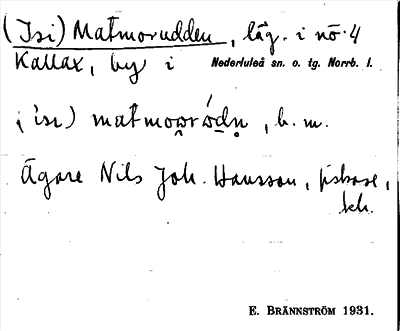 (Isi) Matmorudden, läg. i nö. 4
Kallax, by i Nederluleå sn. o. tg. Norrb. l.
b. m.
Ägare Nils Joh. Hansson, fiskare,
E. BRÄNNSTRÖM 1931.